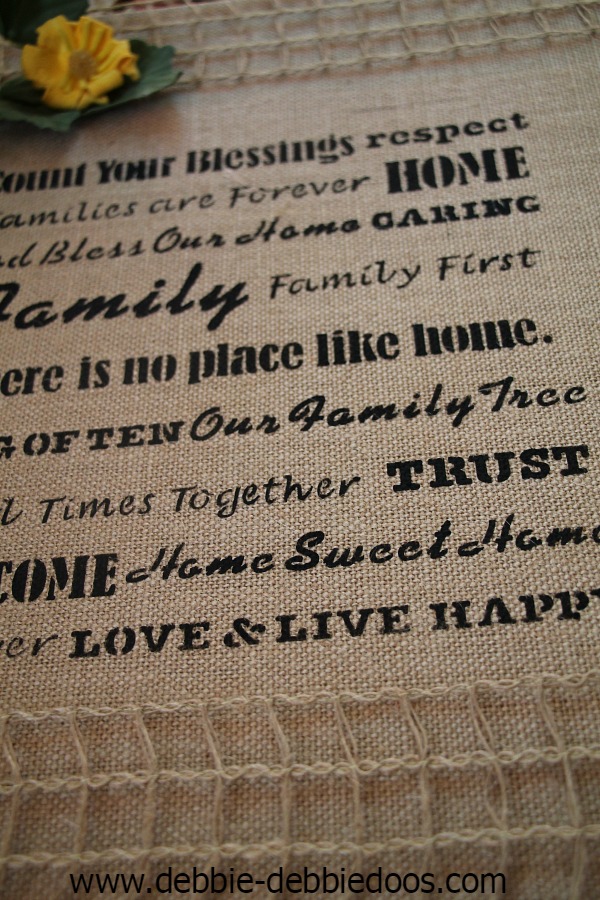 Count Your Blessings respect
Families are Forever HOME
Bless Our Home CARING
Family Family First
ere is no place like home.
G OFTEN Our Family Tree
l Times Together TRUST
COME Home Sweet Home
er LOVE & LIVE HAPPY
www.debbie-debbiedoos.com